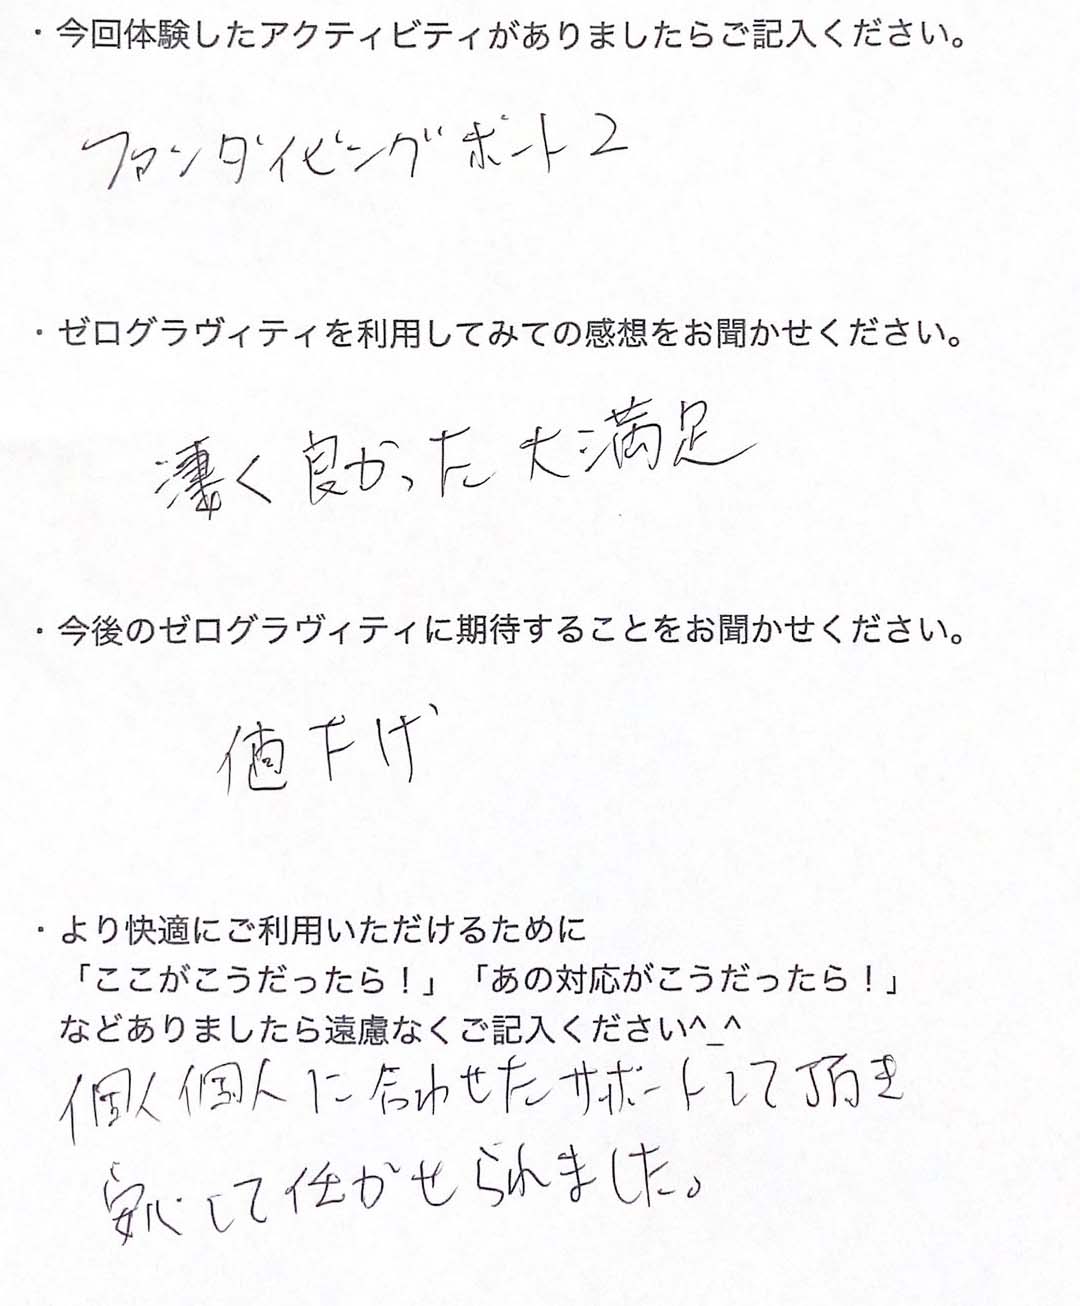 ・今回体験したアクティビティがありましたらご記入ください。
ファンダイビングボート2
・ゼログラヴィティを利用してみての感想をお聞かせください。
凄く良かった大満足
・今後のゼログラヴィティに期待することをお聞かせください。
値下げ
・より快適にご利用いただけるために
「ここがこうだったら！」「あの対応がこうだったら！」
などありましたら遠慮なくご記入ください^_^
個人個人に合わせたサポートして頂き
安心して任かせられました。